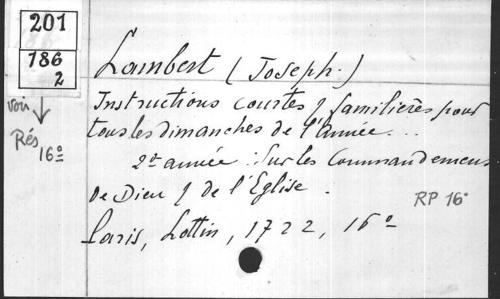 201
786
2
voir
Rés
16º
Lambert (Joseph.)
Instructions courtes & familières pour
tous les dimanches de l'année...
2e année : Sur les Commandemens
de Dieu & de l'Eglise.
RP 16º
Paris, Lottin, 1722, 16º